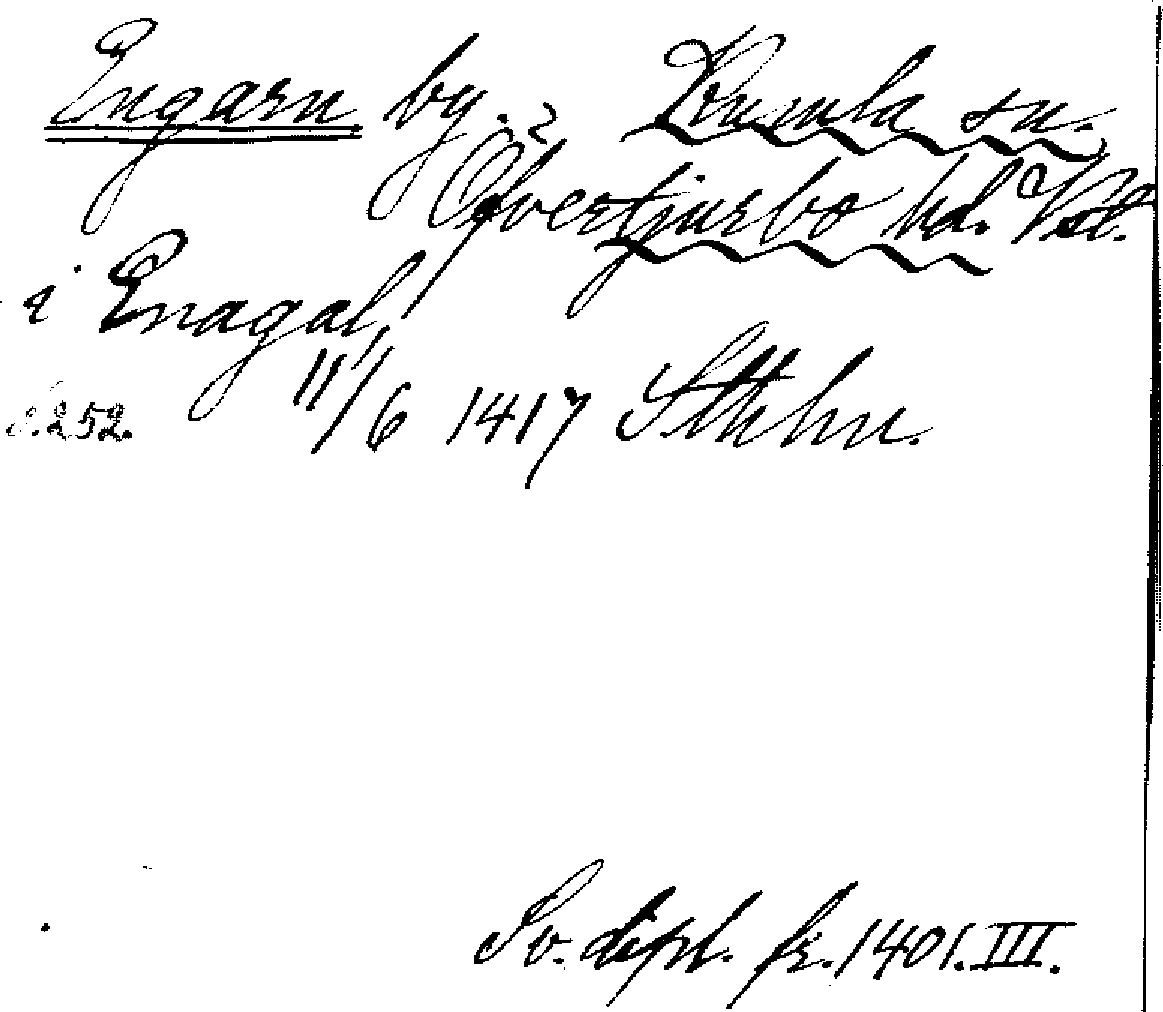 Engarn by. ? Kumla sn.
Övertjurbo hd. Vstl.
i Enagal,
s. 252. 11/6 1417 Sthlm.
Sv. dipl. fr. 1401. III.